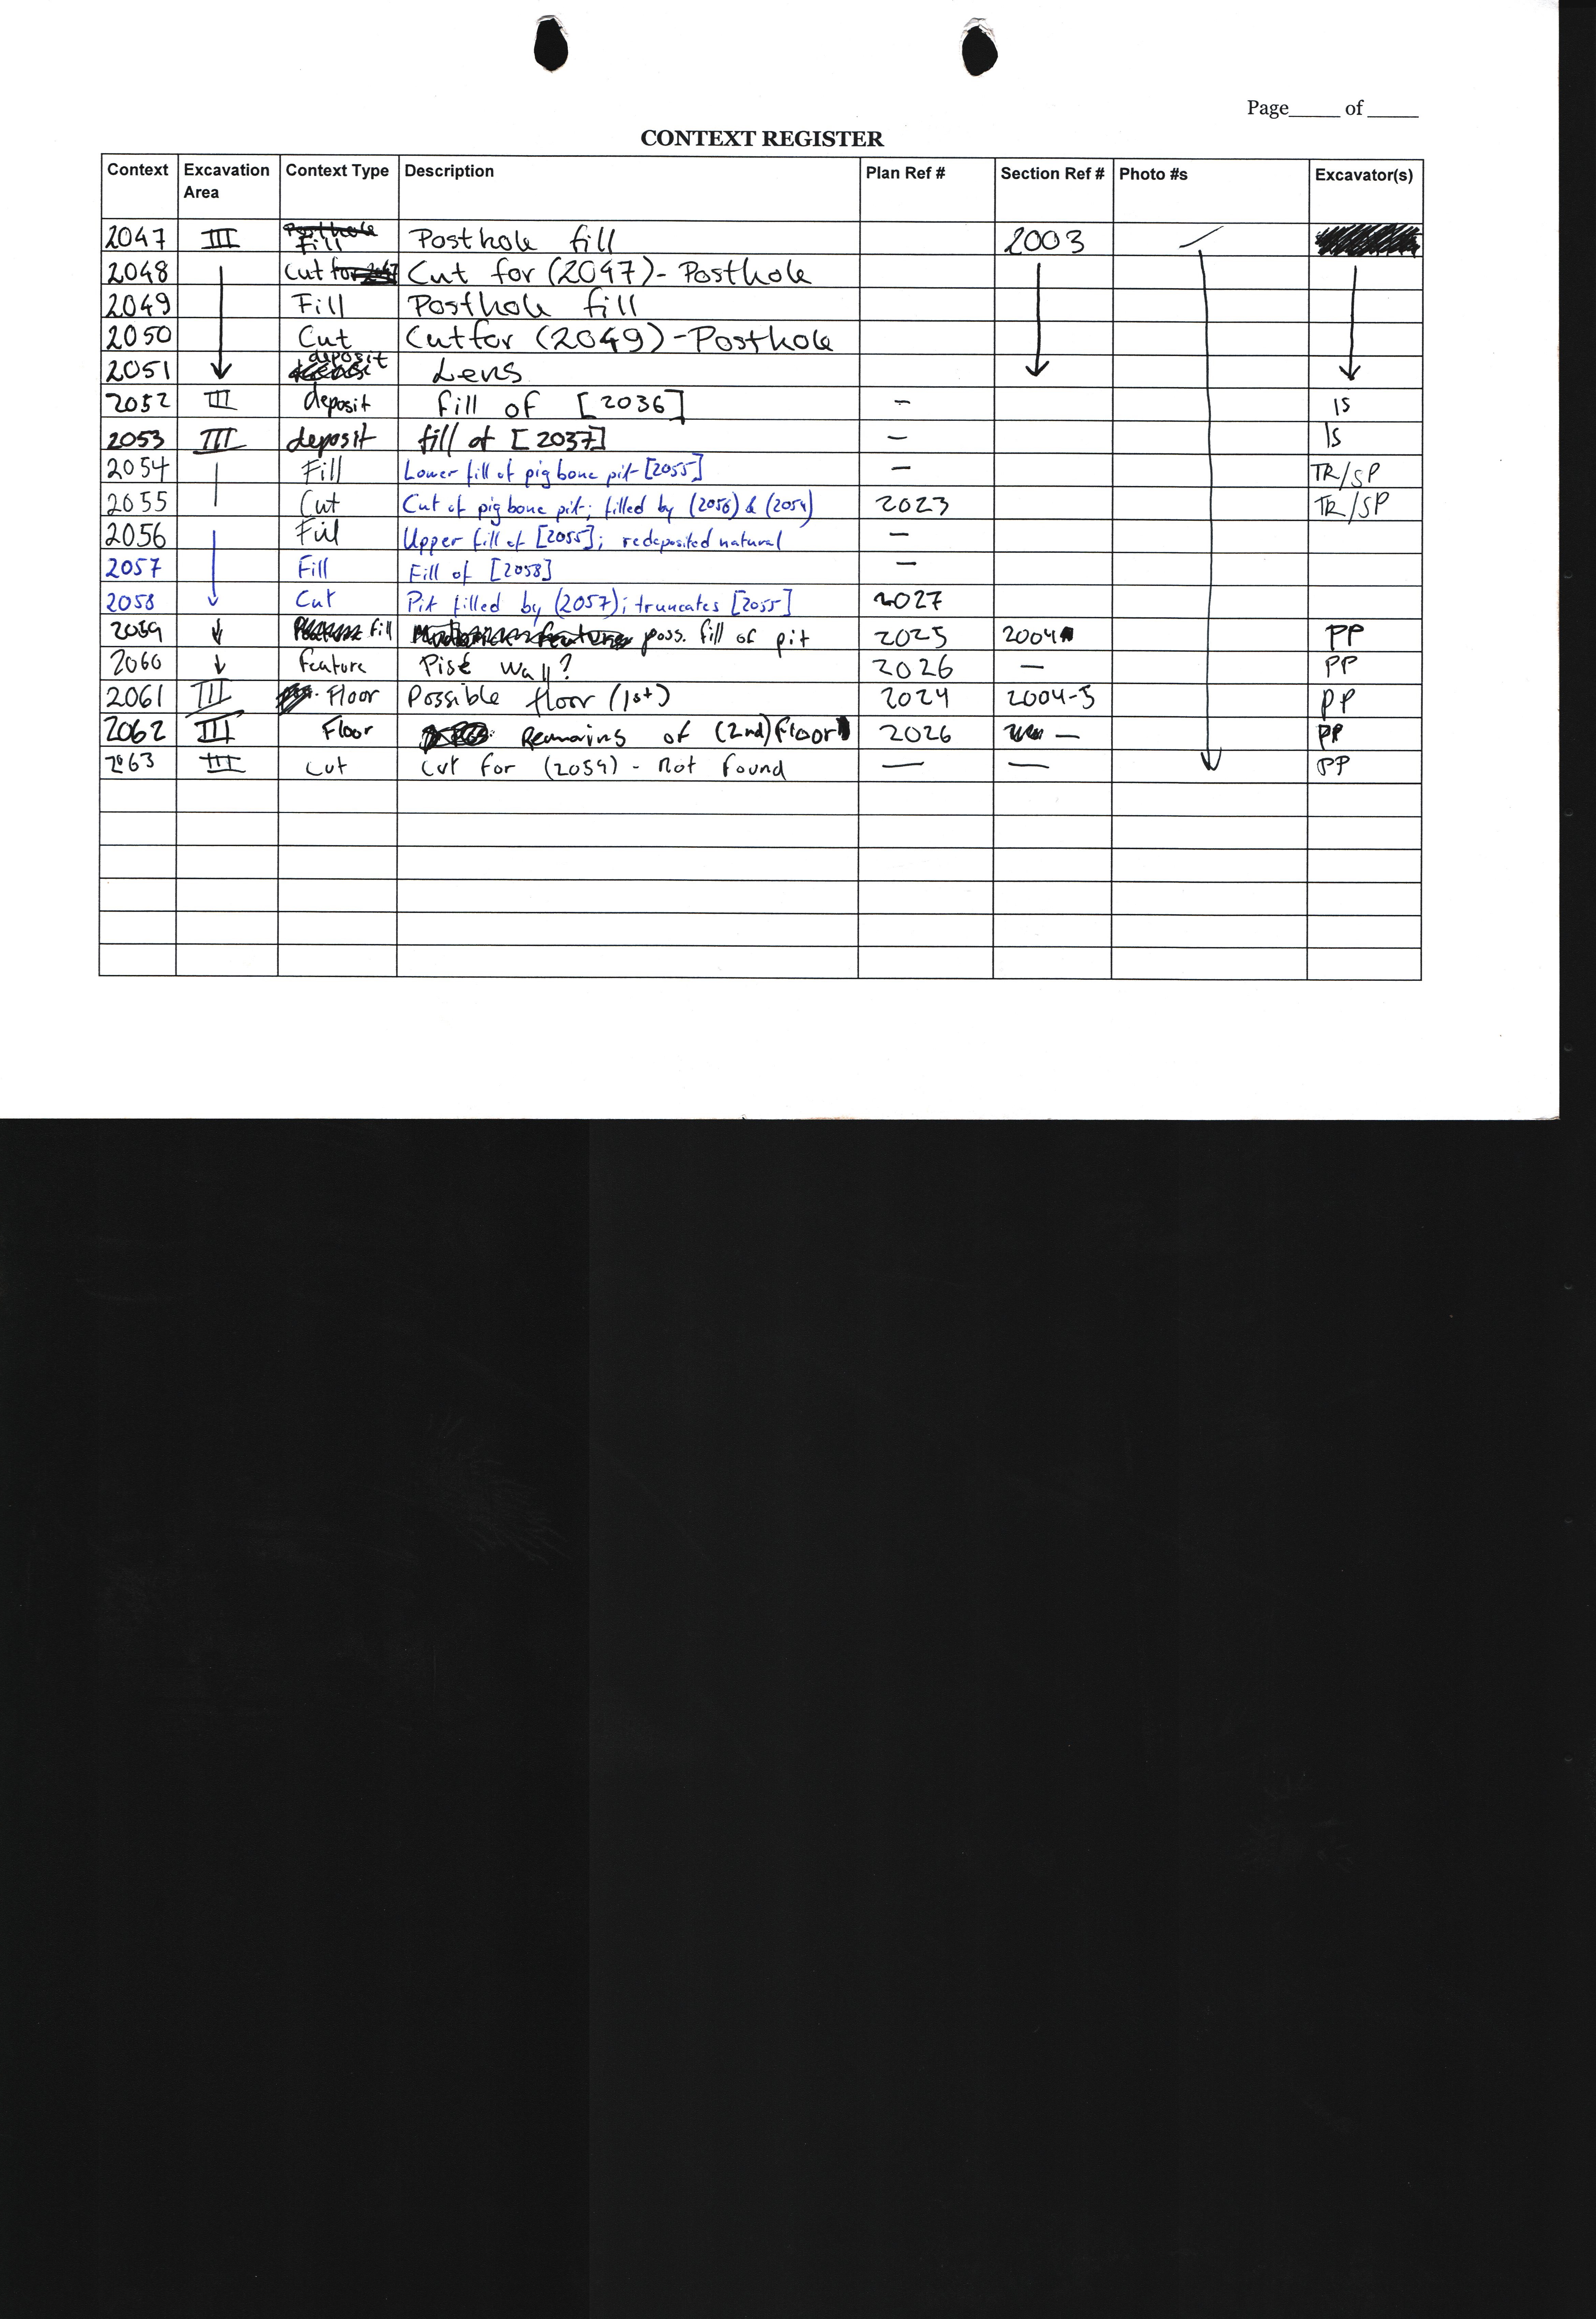 Page_____ of _____
CONTEXT REGISTER
Context Excavation Area Context Type Description Plan Ref # Section Ref # Photo #s Excavator(s)
2047 III Fill Posthole fill 2003
2048 Cut for Cut for (2047)-Posthole
2049 Fill Posthole fill
2050 Cut Cut for (2049)-Posthole
2051 deposit Lens
2052 III deposit fill of [2036] – IS
2053 III deposit fill of [2037] – IS
2054 Fill Lower fill of pig bone pit [2055] – TR/SP
2055 Cut Cut of pig bone pit; filled by (2056) & (2054) 2023 TR/SP
2056 Fill Upper fill of [2055]; redeposited natural –
2057 Fill Fill of [2058] –
2058 Cut Pit filled by (2057); truncates [2055] 2027
2059 fill poss. fill of pit 2025 2004 PP
2060 feature Pisé wall? 2026 — PP
2061 III Floor Possible floor (1st) 2024 2004-5 PP
2062 III Floor Remains of (2nd) floor 2026 — PP
2063 III Cut Cut for (2059) - Not found — — PP